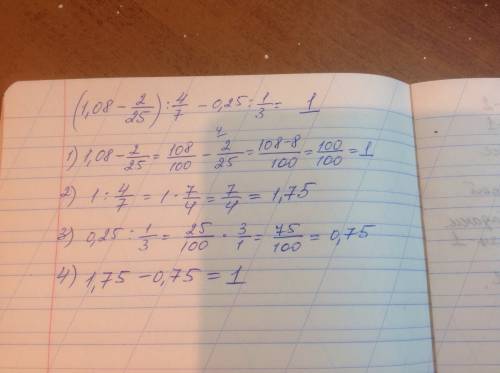 (1,08 - 2/25) : 4/7 - 0,25 : 1/3 = 1
1) 1,08 - 2/25 = 108/100 - 2/25 4 = 108-8/100 = 100/100 = 1
2) 1 : 4/7 = 1 · 7/4 = 7/4 = 1,75
3) 0,25 : 1/3 = 25/100 · 3/1 = 75/100 = 0,75
4) 1,75 - 0,75 = 1